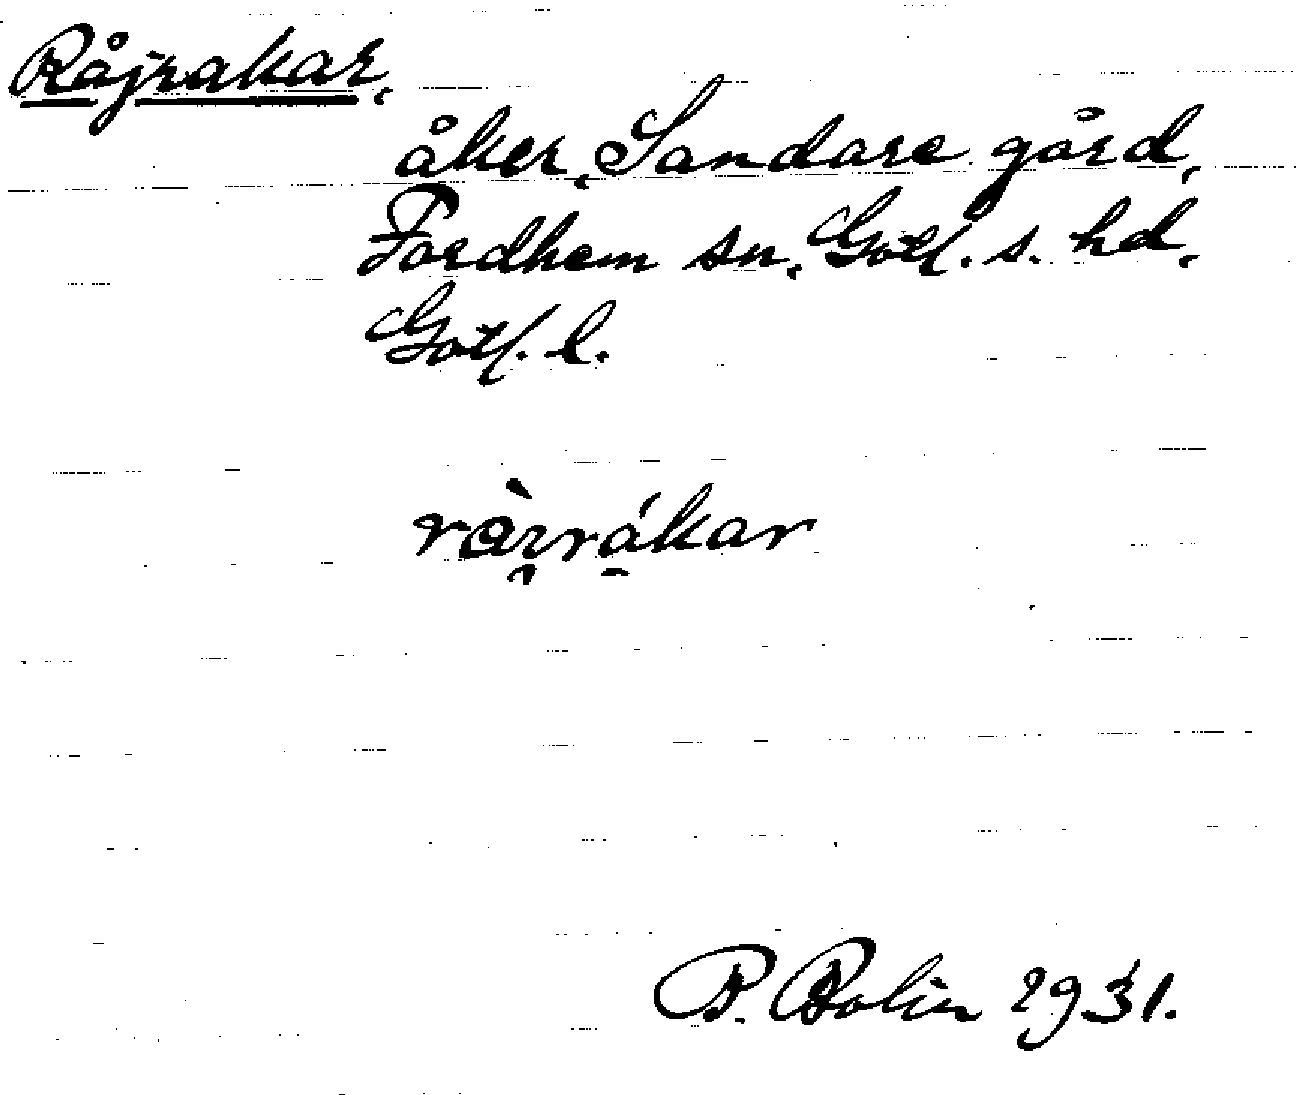 Råjrakar,
åker, Sandare gård,
Fardhem sn, Gotl. s. hd,
Gotl. l.
P. Bolin 1931.